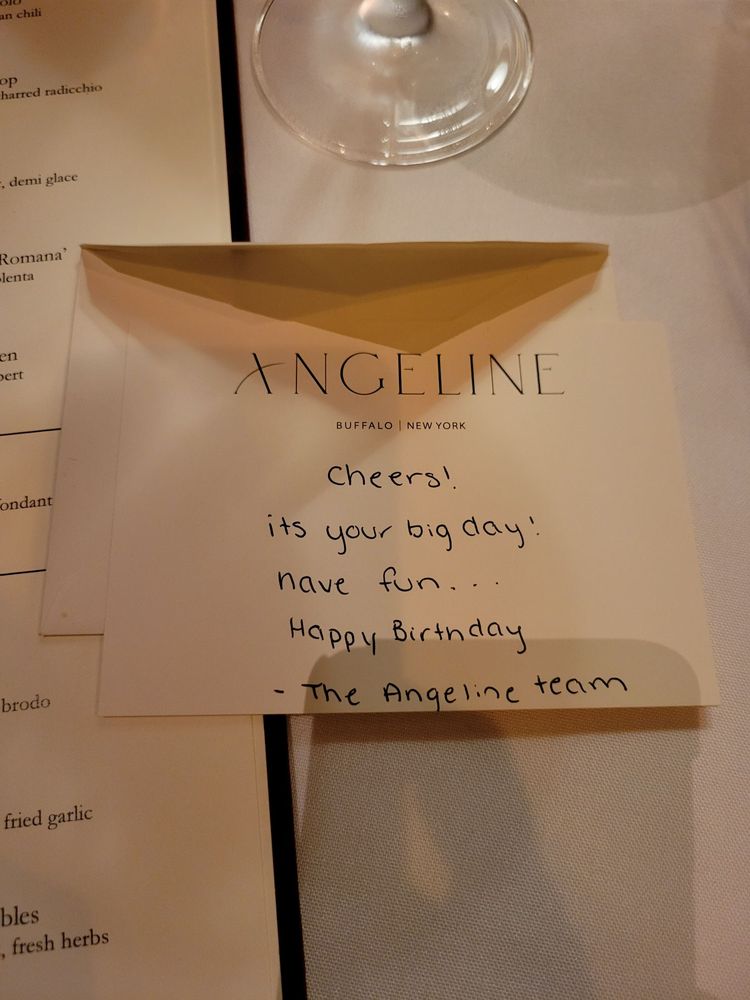 an chili
op
charred radicchio
, demi glace
Romana’
olenta
en
ondant
brodo
fried garlic
bles
, fresh herbs
ANGELINE
BUFFALO | NEW YORK
Cheers!
its your big day!
have fun...
Happy Birthday
- The Angeline team